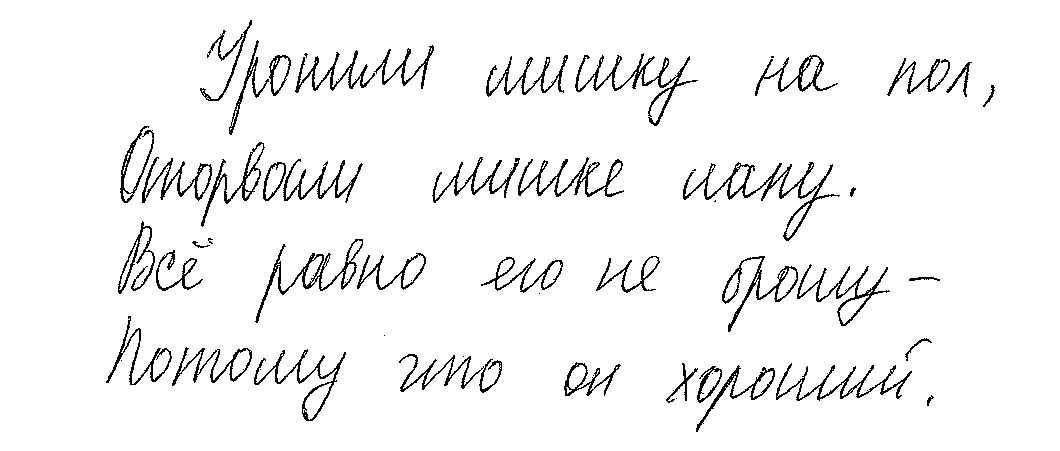 Уронили мишку на пол,
Оторвали мишке лапу.
Всё равно его не брошу –
Потому что он хороший.